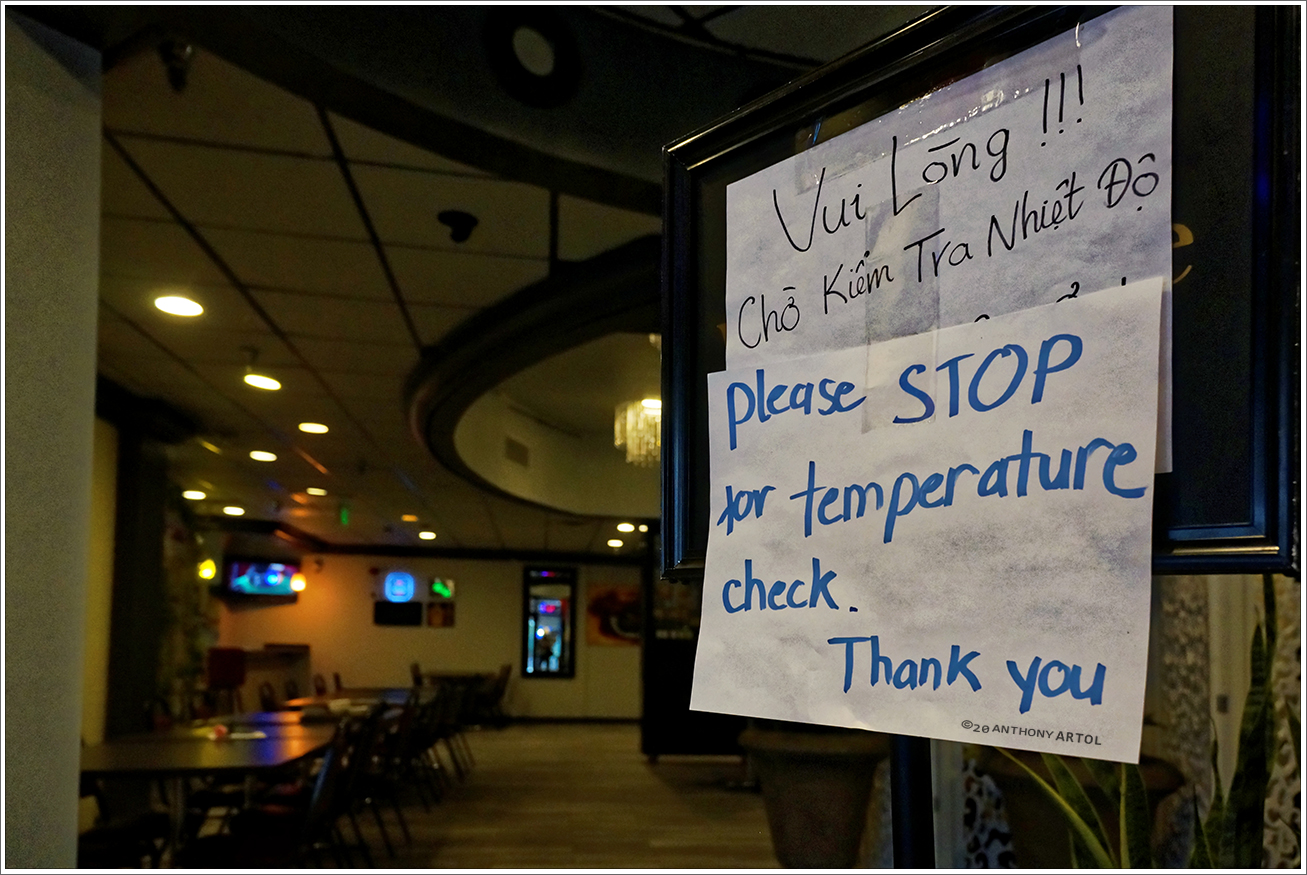 Vui Lòng !!!
Chờ Kiểm Tra Nhiệt Độ
please STOP
for temperature
check.
Thank you
©20 ANTHONY ARTOL